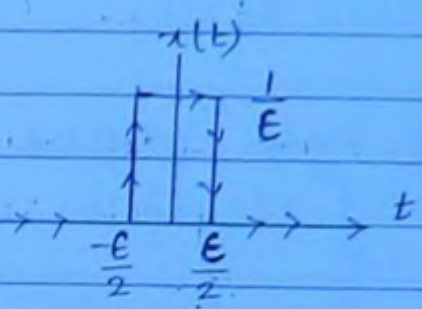 x(t)
1/ε
t
-ε/2
ε/2